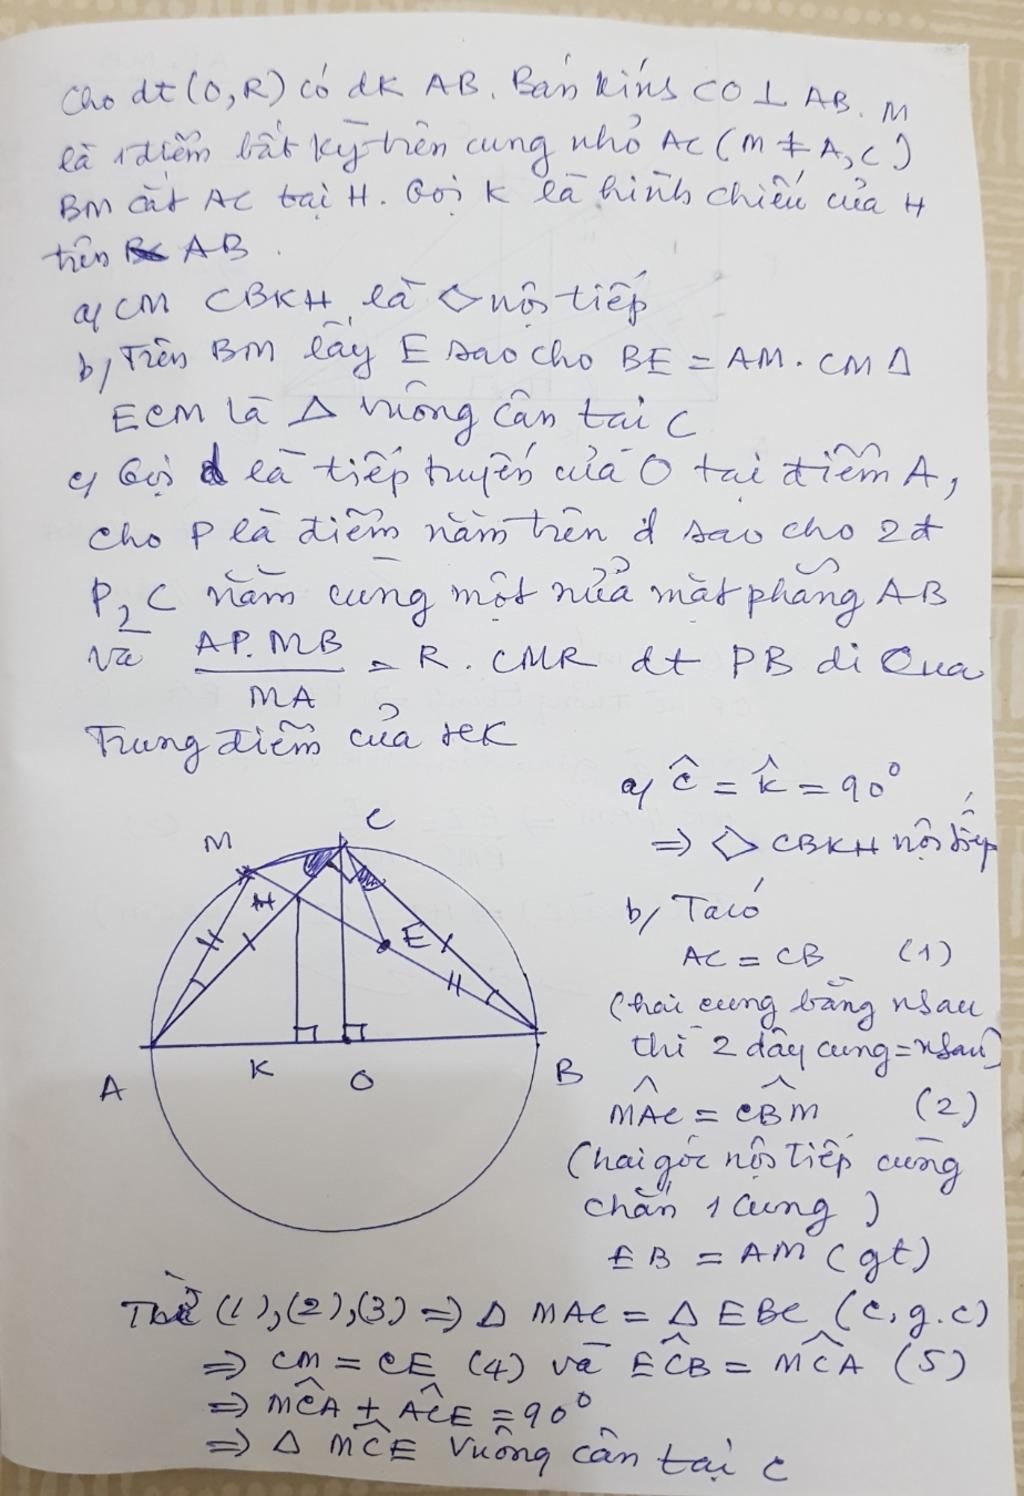 Cho dt (O,R) có dk AB. Bán kính CO ⊥ AB. M
là 1 điểm bất kỳ trên cung nhỏ AC (M ≠ A, C)
BM cắt AC tại H. Gọi K là hình chiếu của H
trên AB.
a/ CM CBKH là ◇ nội tiếp
b/ Trên BM lấy E sao cho BE = AM. CM Δ
ECM là Δ vuông cân tại C
c/ Gọi d là tiếp tuyến của O tại điểm A,
cho P là điểm nằm trên d sao cho 2đ
P, C nằm cùng một nửa mặt phẳng AB
và AP.MB / MA = R. CMR dt PB đi qua
Trung điểm của HK
a/ Ĉ = K̂ = 90°
⇒ ◇ CBKH nội tiếp
M C
H
E
A K O B
b/ Ta có
AC = CB (1)
(hai cung bằng nhau
thì 2 dây cung = nhau)
MÂC = CB̂M (2)
(hai góc nội tiếp cùng
chắn 1 cung)
EB = AM (gt)
Từ (1),(2),(3) ⇒ Δ MAC = Δ EBC (c.g.c)
⇒ CM = CE (4) và EĈB = MĈA (5)
⇒ MĈA + AĈE = 90°
⇒ Δ MĈE vuông cân tại C